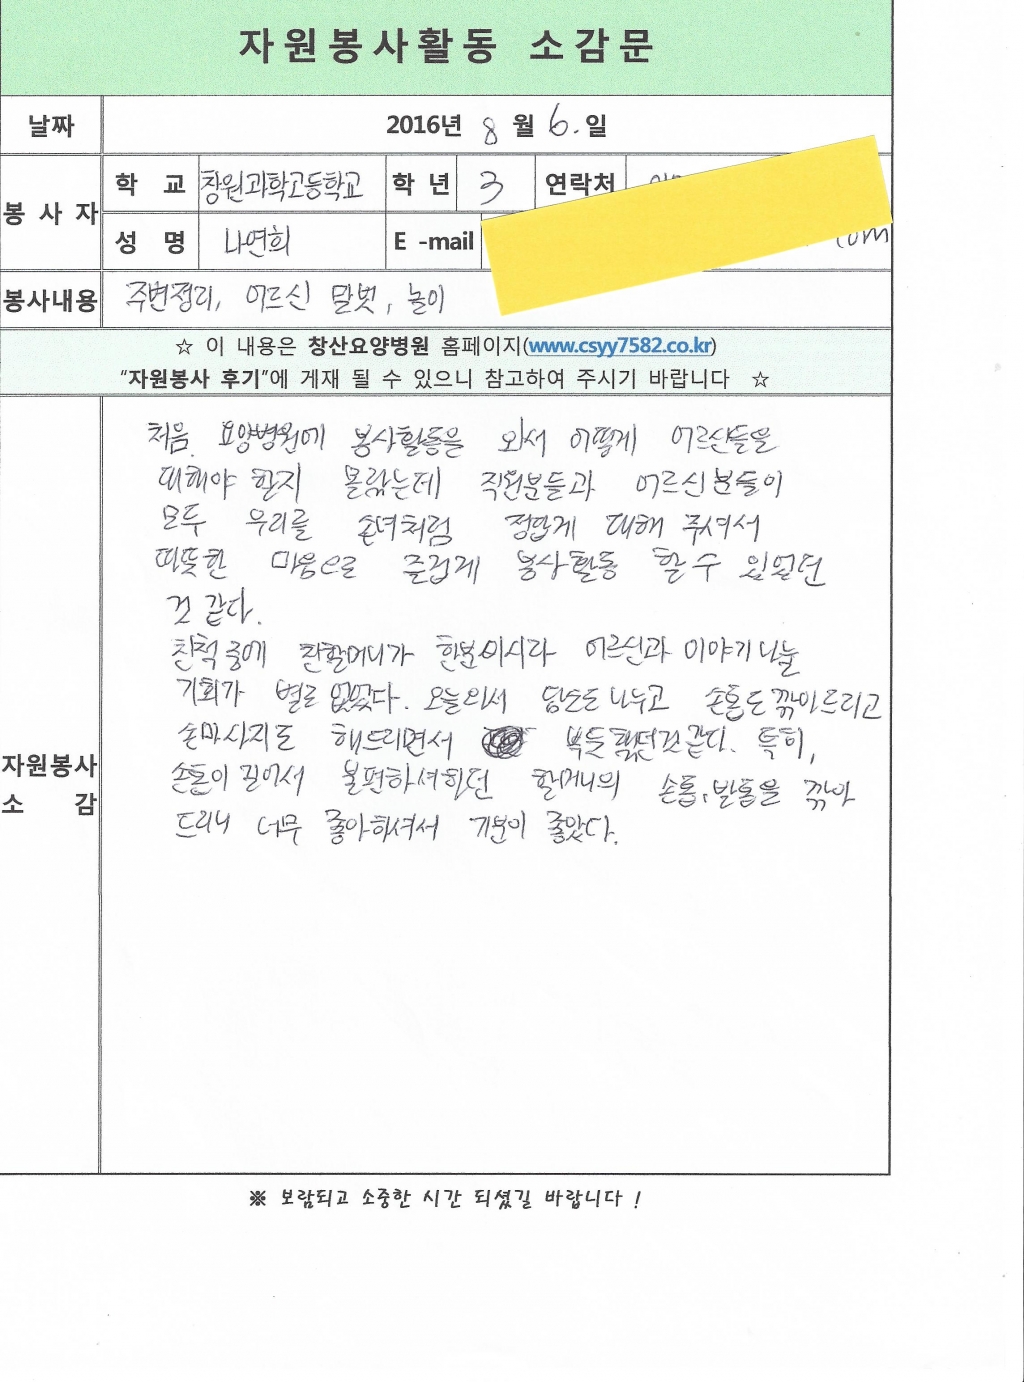 자원봉사활동 소감문
날짜 2016년 8월 6.일
봉 사 자 학 교 창원과학고등학교 학 년 3 연락처
성 명 나연희 E -mail com
봉사내용 주변정리, 어르신 말벗, 놀이
☆ 이 내용은 창산요양병원 홈페이지(www.csyy7582.co.kr)
“자원봉사 후기”에 게재 될 수 있으니 참고하여 주시기 바랍니다 ☆
자원봉사
소 감
처음 요양병원에 봉사활동을 와서 어떻게 어르신들을
대해야 할지 몰랐는데 직원분들과 어르신분들이
모두 우리를 손녀처럼 정답게 대해 주셔서
따뜻한 마음으로 즐겁게 봉사활동 할 수 있었던
것 같다.
친척 중에 친할머니가 한분이시라 어르신과 이야기 나눌
기회가 별로 없었다. 오늘 와서 담소도 나누고 손톱도 깎아드리고
손마사지도 해드리면서 뿌듯했던것 같다. 특히,
손톱이 길어서 불편하셔하던 할머니의 손톱, 발톱을 깎아
드리니 너무 좋아하셔서 기분이 좋았다.
※ 보람되고 소중한 시간 되셨길 바랍니다 !